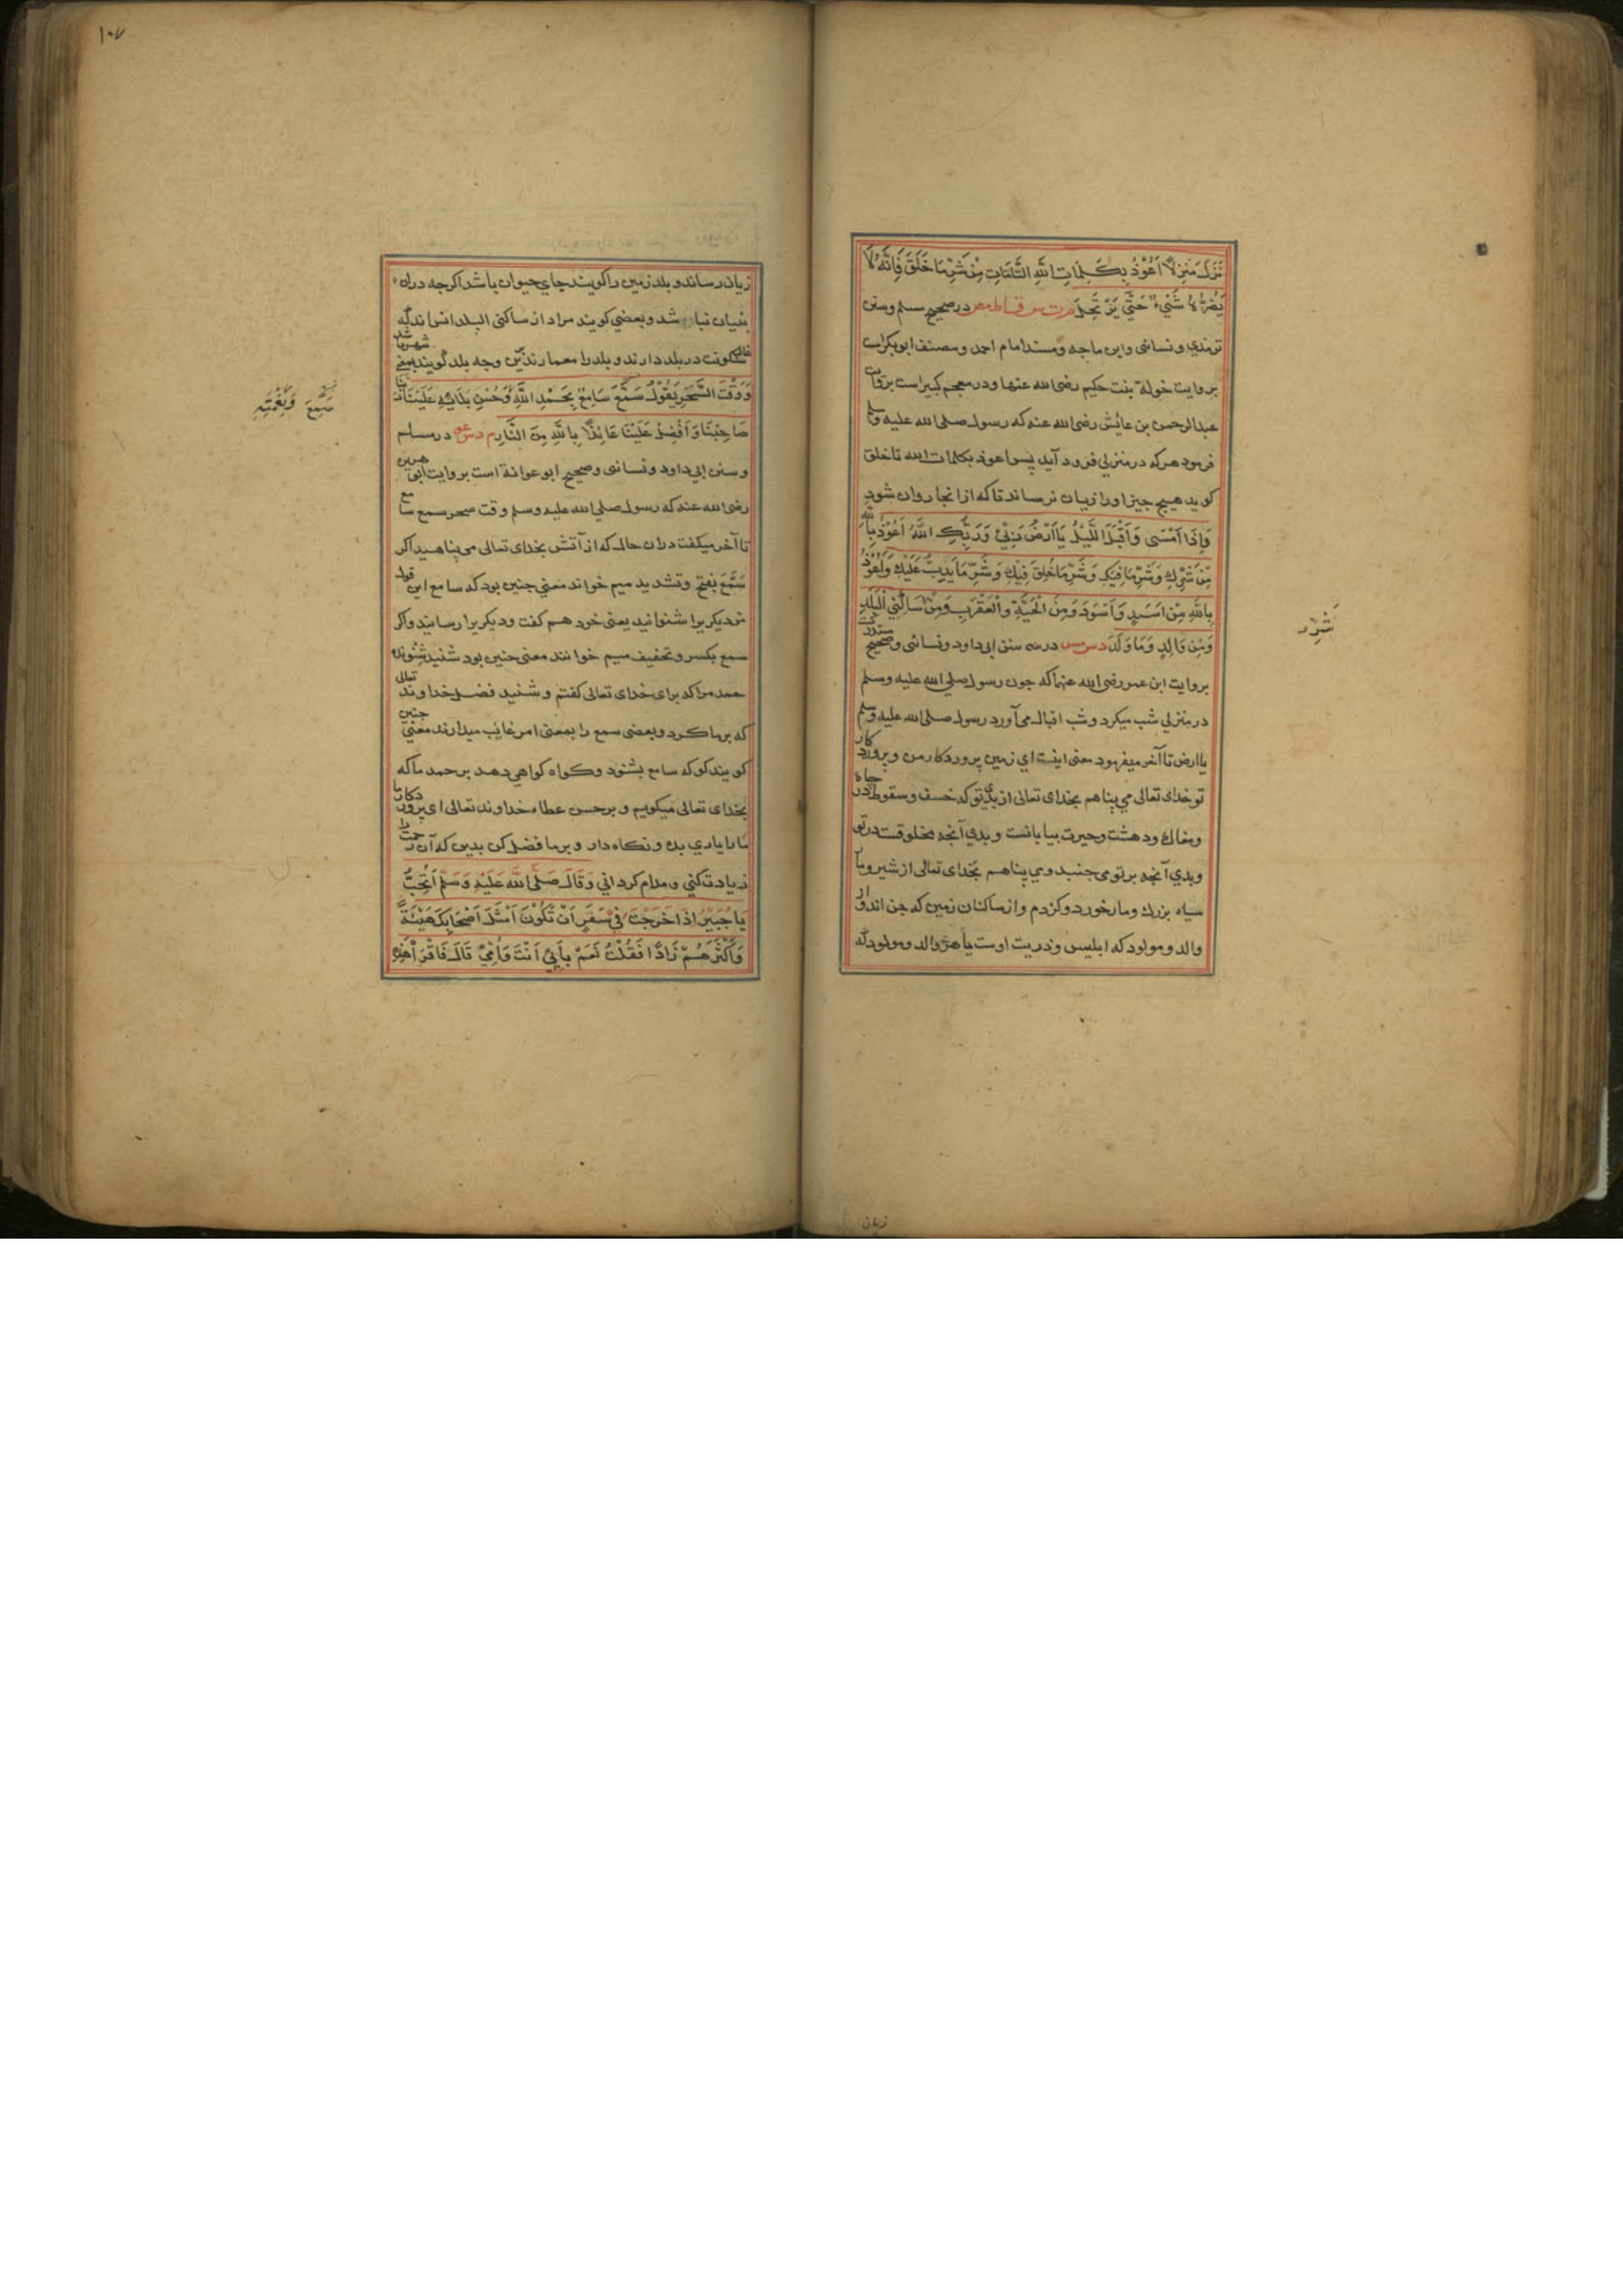 نَزَلَ مَنْزِلًا اَعُوْذُ بِكَلِمَاتِ اللّٰهِ التَّامَّاتِ مِنْ شَرِّ مَا خَلَقَ فَاِنَّهُ لَا
يَضُرُّهُ شَيْءٌ حَتّٰي يَرْتَحِلَ م ت س ق ا ط مص در صحيح مسلم وسنن
ترمذي ونسائى وابن ماجه ومسند امام احمد ومصنف ابوبكراست
بروايت خولة بنت حكيم رضى الله عنها ودر معجم كبيراست بروايت
عبدالرحمن بن عائش رضى الله عنه كه رسول صلى الله عليه وسلم
فرمود هركه در منزلي فرود آيد پس اعوذ بكلمات الله تا خلق
كويد هيچ چيز اورا زيان نرساند تاكه ازانجا روان شود
وَاِذَا اَمْسٰى وَاَقْبَلَ اللَّيْلُ يَا اَرْضُ رَبِّيْ وَرَبُّكِ اللّٰهُ اَعُوْذُ بِاللّٰهِ
مِنْ شَرِّكِ وَشَرِّ مَا فِيْكِ وَشَرِّ مَا خُلِقَ فِيْكِ وَشَرِّ مَا يَدِبُّ عَلَيْكِ وَاَعُوْذُ
بِاللّٰهِ مِنْ اَسَدٍ وَاَسْوَدَ وَمِنَ الْحَيَّةِ وَالْعَقْرَبِ وَمِنْ سَاكِنِي الْبَلَدِ
وَمِنْ وَالِدٍ وَمَا وَلَدَ د س مس در سنن ابى داود ونسائى وصحيح مستدرك
بروايت ابن عمر رضى الله عنهما كه چون رسول صلي الله عليه وسلم
در منزلي شب ميكرد وشب اقبال مى آورد رسول صلى الله عليه وسلم
يا ارض تا آخر ميفرمود معنى اينست اي زمين پروردكار من وپروردكار
تو خداى تعالى مي پناهم بخداى تعالى از بدي تو كه خسف وسقوط در چاه
ومغاك ودهشت وحيرت بيابانست وبدي آنچه مخلوقست در تو
وبدي آنچه بر تو مى جنبد ومي پناهم بخداى تعالى از شير ومار
سياه بزرك ومار خورد وكژدم واز ساكنان زمين كه جن اند واز
والد ومولود كه ابليس وذريت اوست يا هر والد ومولود كه
شَرِّ
زيان
١٠٧
زيان رساند وبلد زمين را كويند جاي حيوان باشد اكرچه دران
بنيان نباشد وبعضي كويند مراد از ساكني البلد انس اند كه غالب
سكونت در بلد دارند وبلد را معمارند وجه بلد كويند يعني شهرها
وَوَقْتَ السَّحَرِ يَقُوْلُ سَمَّعَ سَامِعٌ بِحَمْدِ اللّٰهِ وَحُسْنِ بَلَائِهِ عَلَيْنَا رَبَّنَا
صَاحِبْنَا وَاَفْضِلْ عَلَيْنَا عَائِذًا بِاللّٰهِ مِنَ النَّارِ م د س عو در مسلم
وسنن ابي داود ونسائى وصحيح ابو عوانة است بروايت ابى هريره
رضى الله عنه كه رسول صلي الله عليه وسلم وقت سحر سمع سامع
تا آخر ميكفت دران حال كه از آتش بخداى تعالى مى پناهيد اكر
سَمَّعَ بفتح وتشديد ميم خواند معني چنين بود كه سامع اين قول
مر ديكريرا شنوانيد يعنى خود هم كفت وديكريرا رسانيد واكر
سمع بكسر وتخفيف ميم خوانند معنى چنين بود شنيد شنونده
حمد مرا كه براى خداى تعالى كفتم وشنيد فضل خداوند تعالى
كه بر ما كرد وبعضى سمع را بمعنى امر غايب ميدارند معني چنين
كويند كو كه سامع بشنود وكواه كواهي دهد بر حمد ما كه
بخداى تعالى ميكويم وبر حسن عطاء خداوند تعالى اى پروردكار ما
ما را ياري بده ونكاه دار وبر ما فضل كن بدين كه آن رحمت را
زيادت كني ومدام كرداني وَقَالَ صَلَّى اللّٰهُ عَلَيْهِ وَسَلَّمَ اَتُحِبُّ
يَا جُبَيْرُ اِذَا خَرَجْتَ فِيْ سَفَرٍ اَنْ تَكُوْنَ اَمْثَلَ اَصْحَابِكَ هَيْئَةً
وَاَكْثَرَهُمْ زَادًا فَقُلْتُ نَعَمْ بِاَبِيْ اَنْتَ وَاُمِّيْ قَالَ فَاقْرَأْ هٰذِهِ
سَمِعَ وَنِعْمَتِهِ